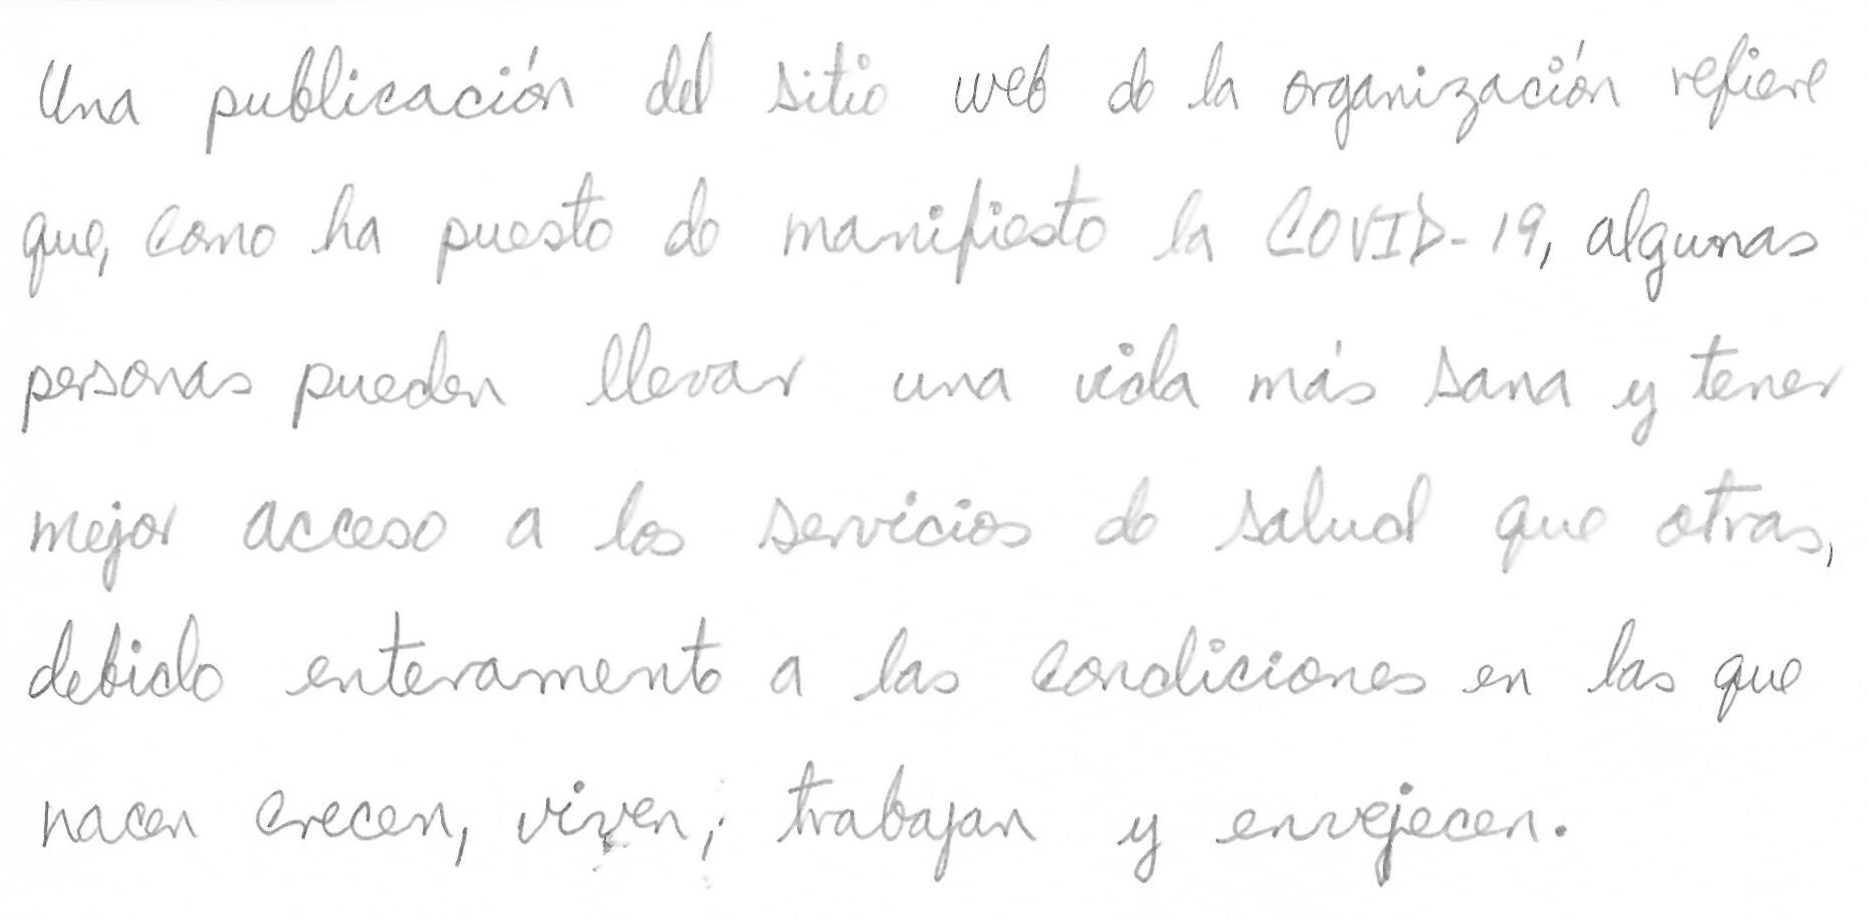 Una publicación del sitio web de la organización refiere
que, como ha puesto de manifiesto la COVID-19, algunas
personas pueden llevar una vida más sana y tener
mejor acceso a los servicios de salud que otras,
debido enteramente a las condiciones en las que
nacen crecen, viven, trabajan y envejecen.